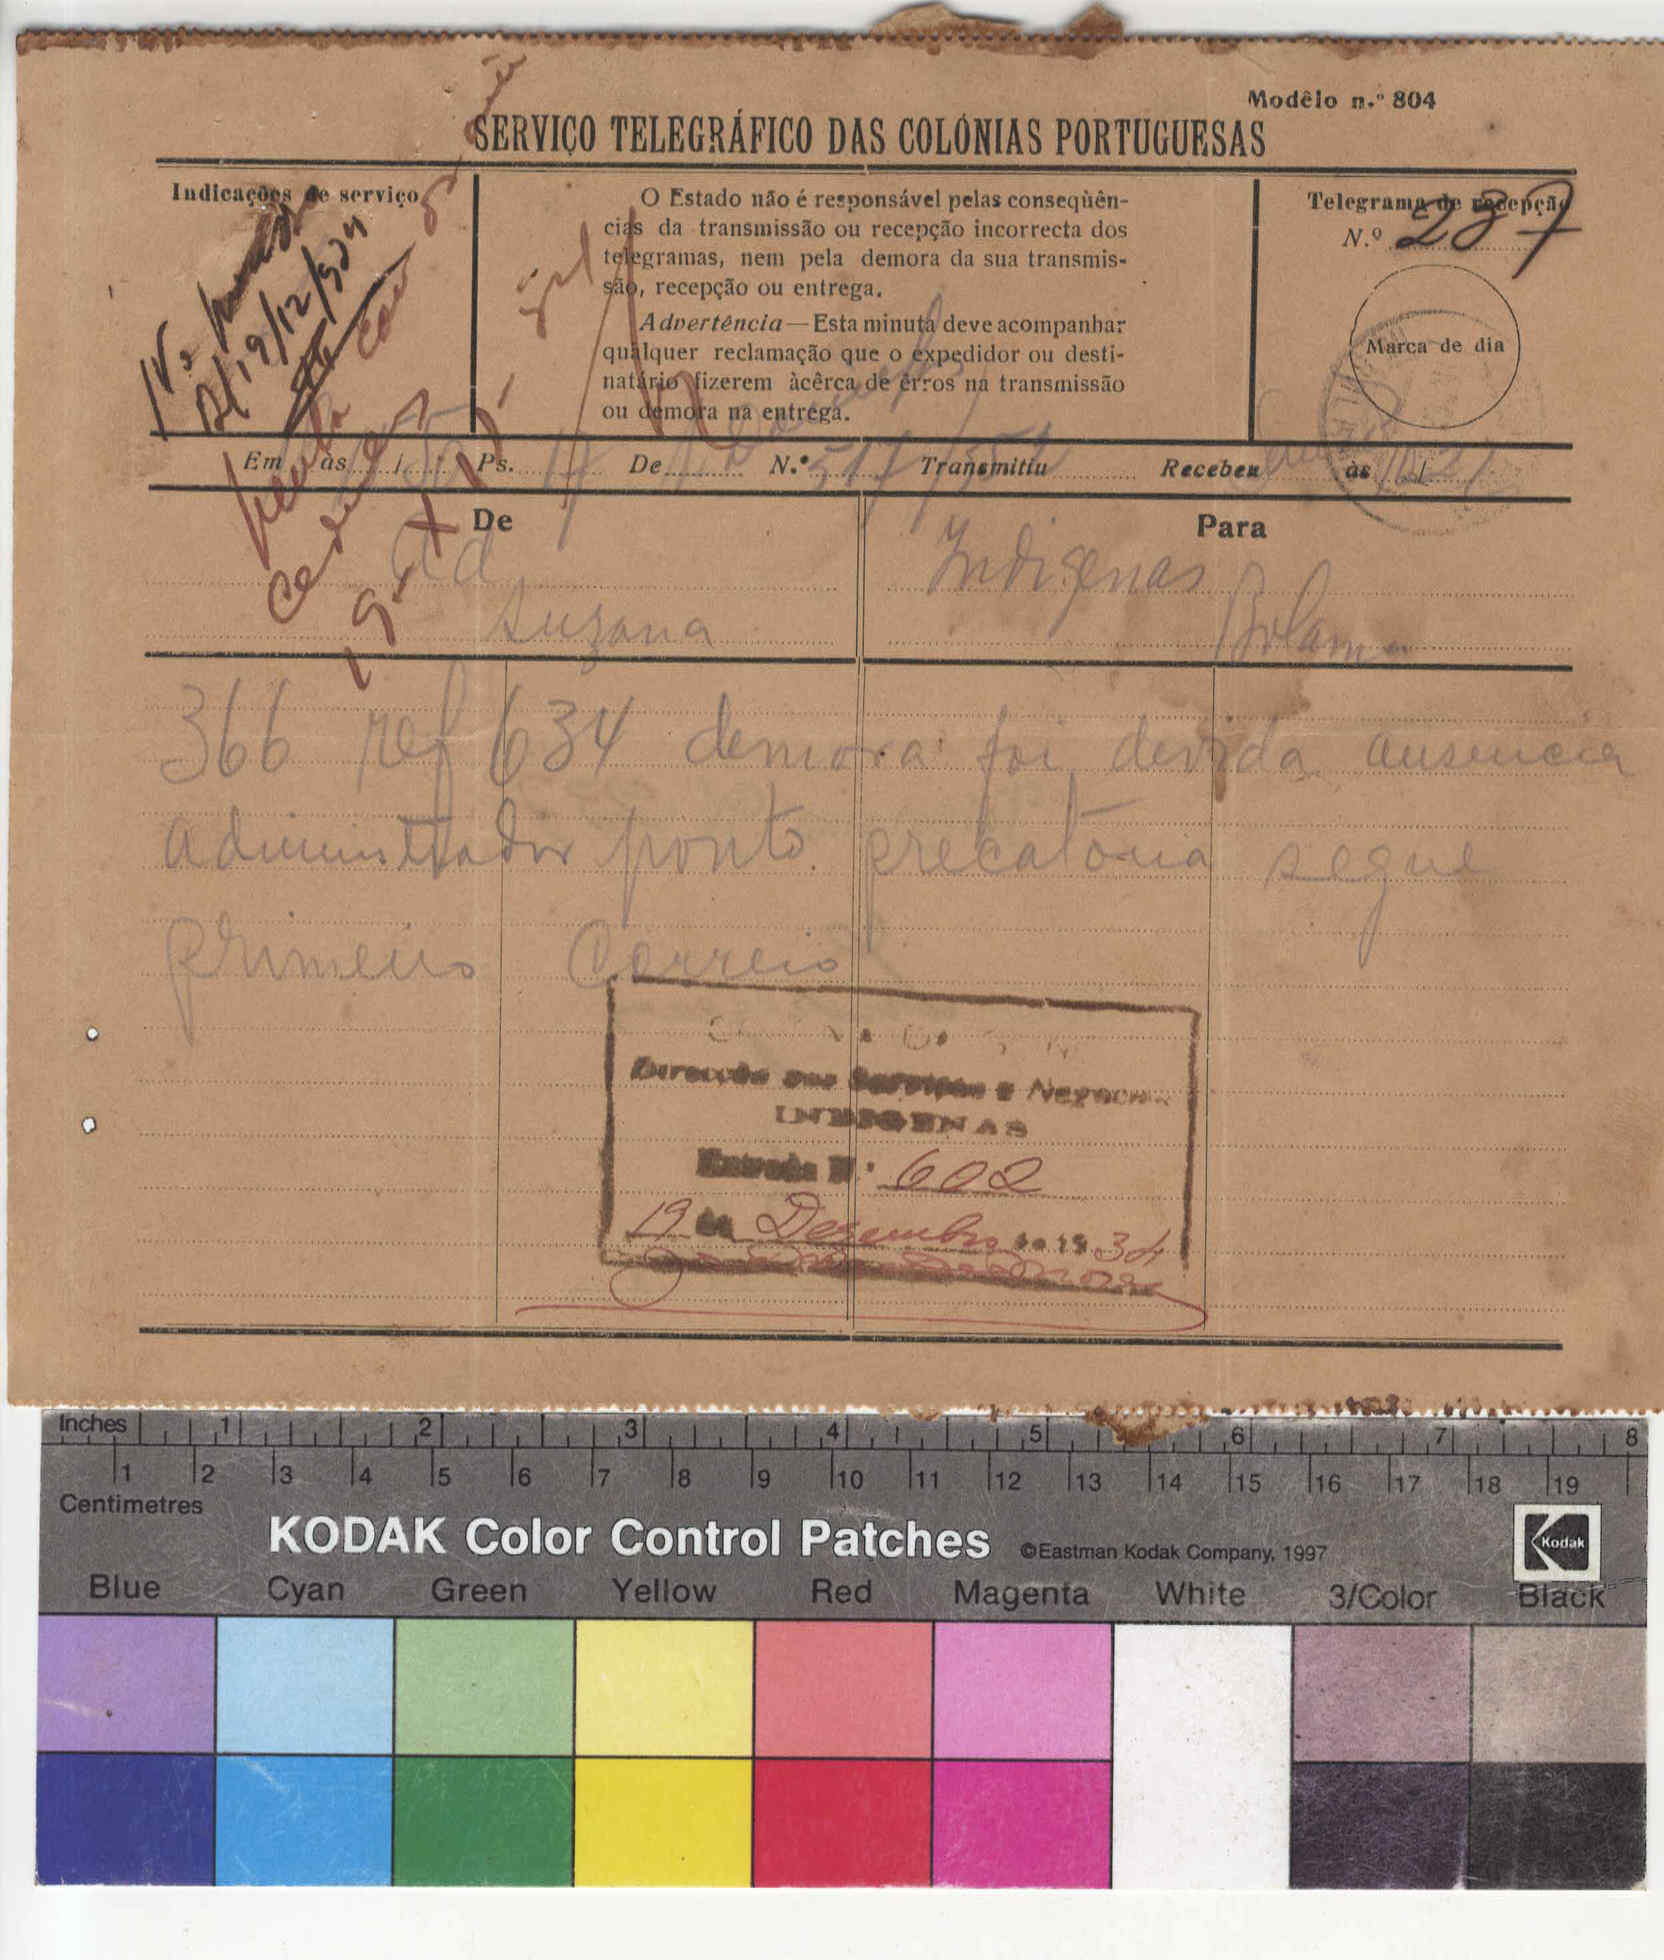 Modêlo n.º 804
SERVIÇO TELEGRÁFICO DAS COLÓNIAS PORTUGUESAS
Indicações de serviço
19/12/934
O Estado não é responsável pelas conseqüên-
cias da transmissão ou recepção incorrecta dos
telegramas, nem pela demora da sua transmis-
são, recepção ou entrega.
Advertência—Esta minuta deve acompanhar
qualquer reclamação que o expedidor ou desti-
natário fizerem àcêrca de êrros na transmissão
ou demora na entrega.
Telegrama de recepção
N.º 237
Marca de dia
Em às / : Ps. 17 De N.º 517 Transmitiu Recebeu às /
De
Ad
Suzana
Para
Indigenas
Bolama
366 ref 634 demora foi devida ausencia
administrador ponto precatória segue
primeiro correio
Direcção dos Serviços e Negocios
INDIGENAS
Entrada N.º 602
19 de Dezembro de 1934
Inches 1 2 3 4 5 6 7 8
1 2 3 4 5 6 7 8 9 10 11 12 13 14 15 16 17 18 19
Centimetres
KODAK Color Control Patches ©Eastman Kodak Company, 1997 Kodak
Blue Cyan Green Yellow Red Magenta White 3/Color Black